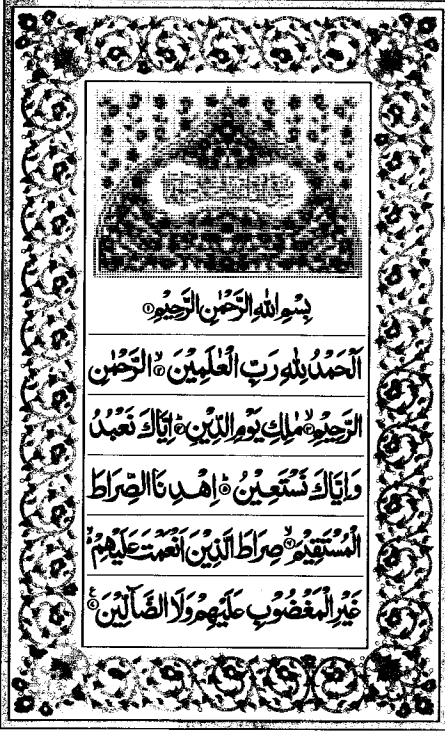 بِسْمِ اللهِ الرَّحْمٰنِ الرَّحِيْمِ ۝۱
اَلْحَمْدُ لِلّٰهِ رَبِّ الْعٰلَمِيْنَ ۝۲ الرَّحْمٰنِ
الرَّحِيْمِ ۝۳ مٰلِكِ يَوْمِ الدِّيْنِ ۝۴ اِيَّاكَ نَعْبُدُ
وَاِيَّاكَ نَسْتَعِيْنُ ۝۵ اِهْدِنَا الصِّرَاطَ
الْمُسْتَقِيْمَ ۝۶ صِرَاطَ الَّذِيْنَ اَنْعَمْتَ عَلَيْهِمْ
غَيْرِ الْمَغْضُوْبِ عَلَيْهِمْ وَلَا الضَّآلِّيْنَ ۝۷